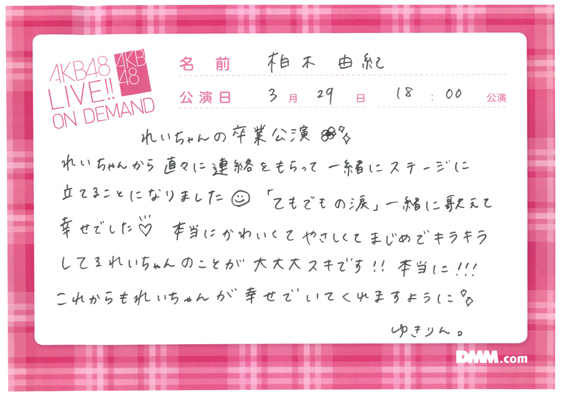 AKB48
LIVE!!
ON DEMAND
AKB
48
名 前 柏木 由紀
公演日 3月 29日 18:00 公演
れいちゃんの卒業公演
れいちゃんから直々に連絡をもらって一緒にステージに
立てることになりました 「てもでもの涙」一緒に歌えて
幸せでした♡ 本当にかわいくてやさしくてまじめでキラキラ
してるれいちゃんのことが大大大スキです!! 本当に!!!
これからもれいちゃんが幸せでいてくれますように
ゆきりん。
DMM.com